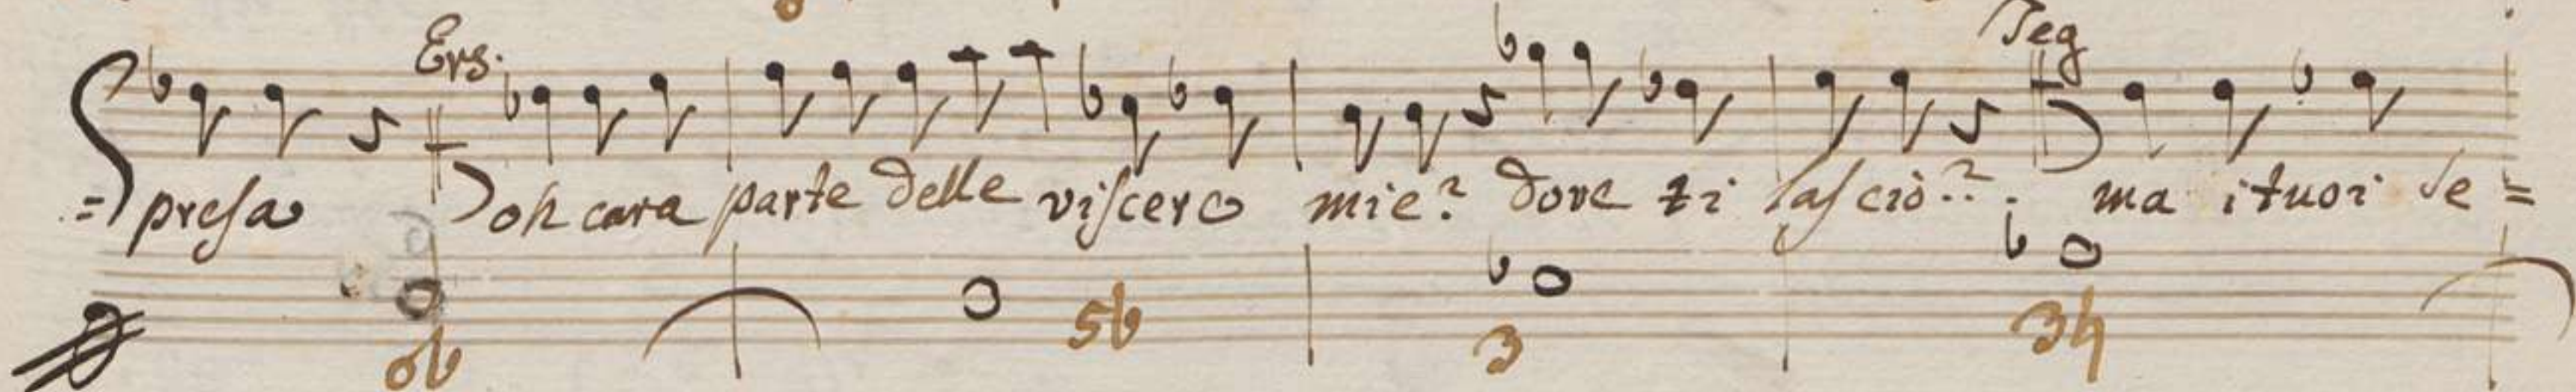 Ers. Teg
=presa Doh cara parte delle viscere mie? dove ti lasciò?. ma i tuoi se=
6b 5b 3 3♮